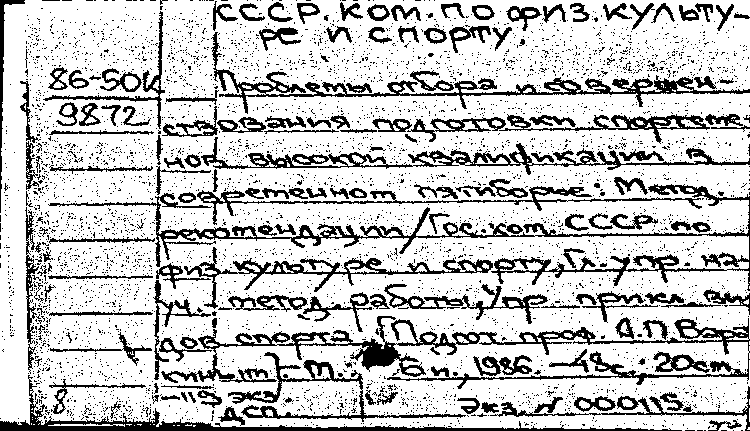 СССР. КОМ. ПО ФИЗ. КУЛЬТУ-
РЕ И СПОРТУ.
86-50К
9872
Проблемы отбора и совершен-
ствования подготовки спортсме-
нов высокой квалификации в
современном пятиборье: Метод.
рекомендации / Гос. ком. СССР по
физ. культуре и спорту, Гл. упр. на-
уч.-метод. работы, Упр. прикл. ви-
дов спорта. [Подгот. проф. А.П. Вара-
киным]. - М.: Б.и., 1986. - 48с.; 20см.
- 115 экз.
ДСП. Экз. N 000115.
8